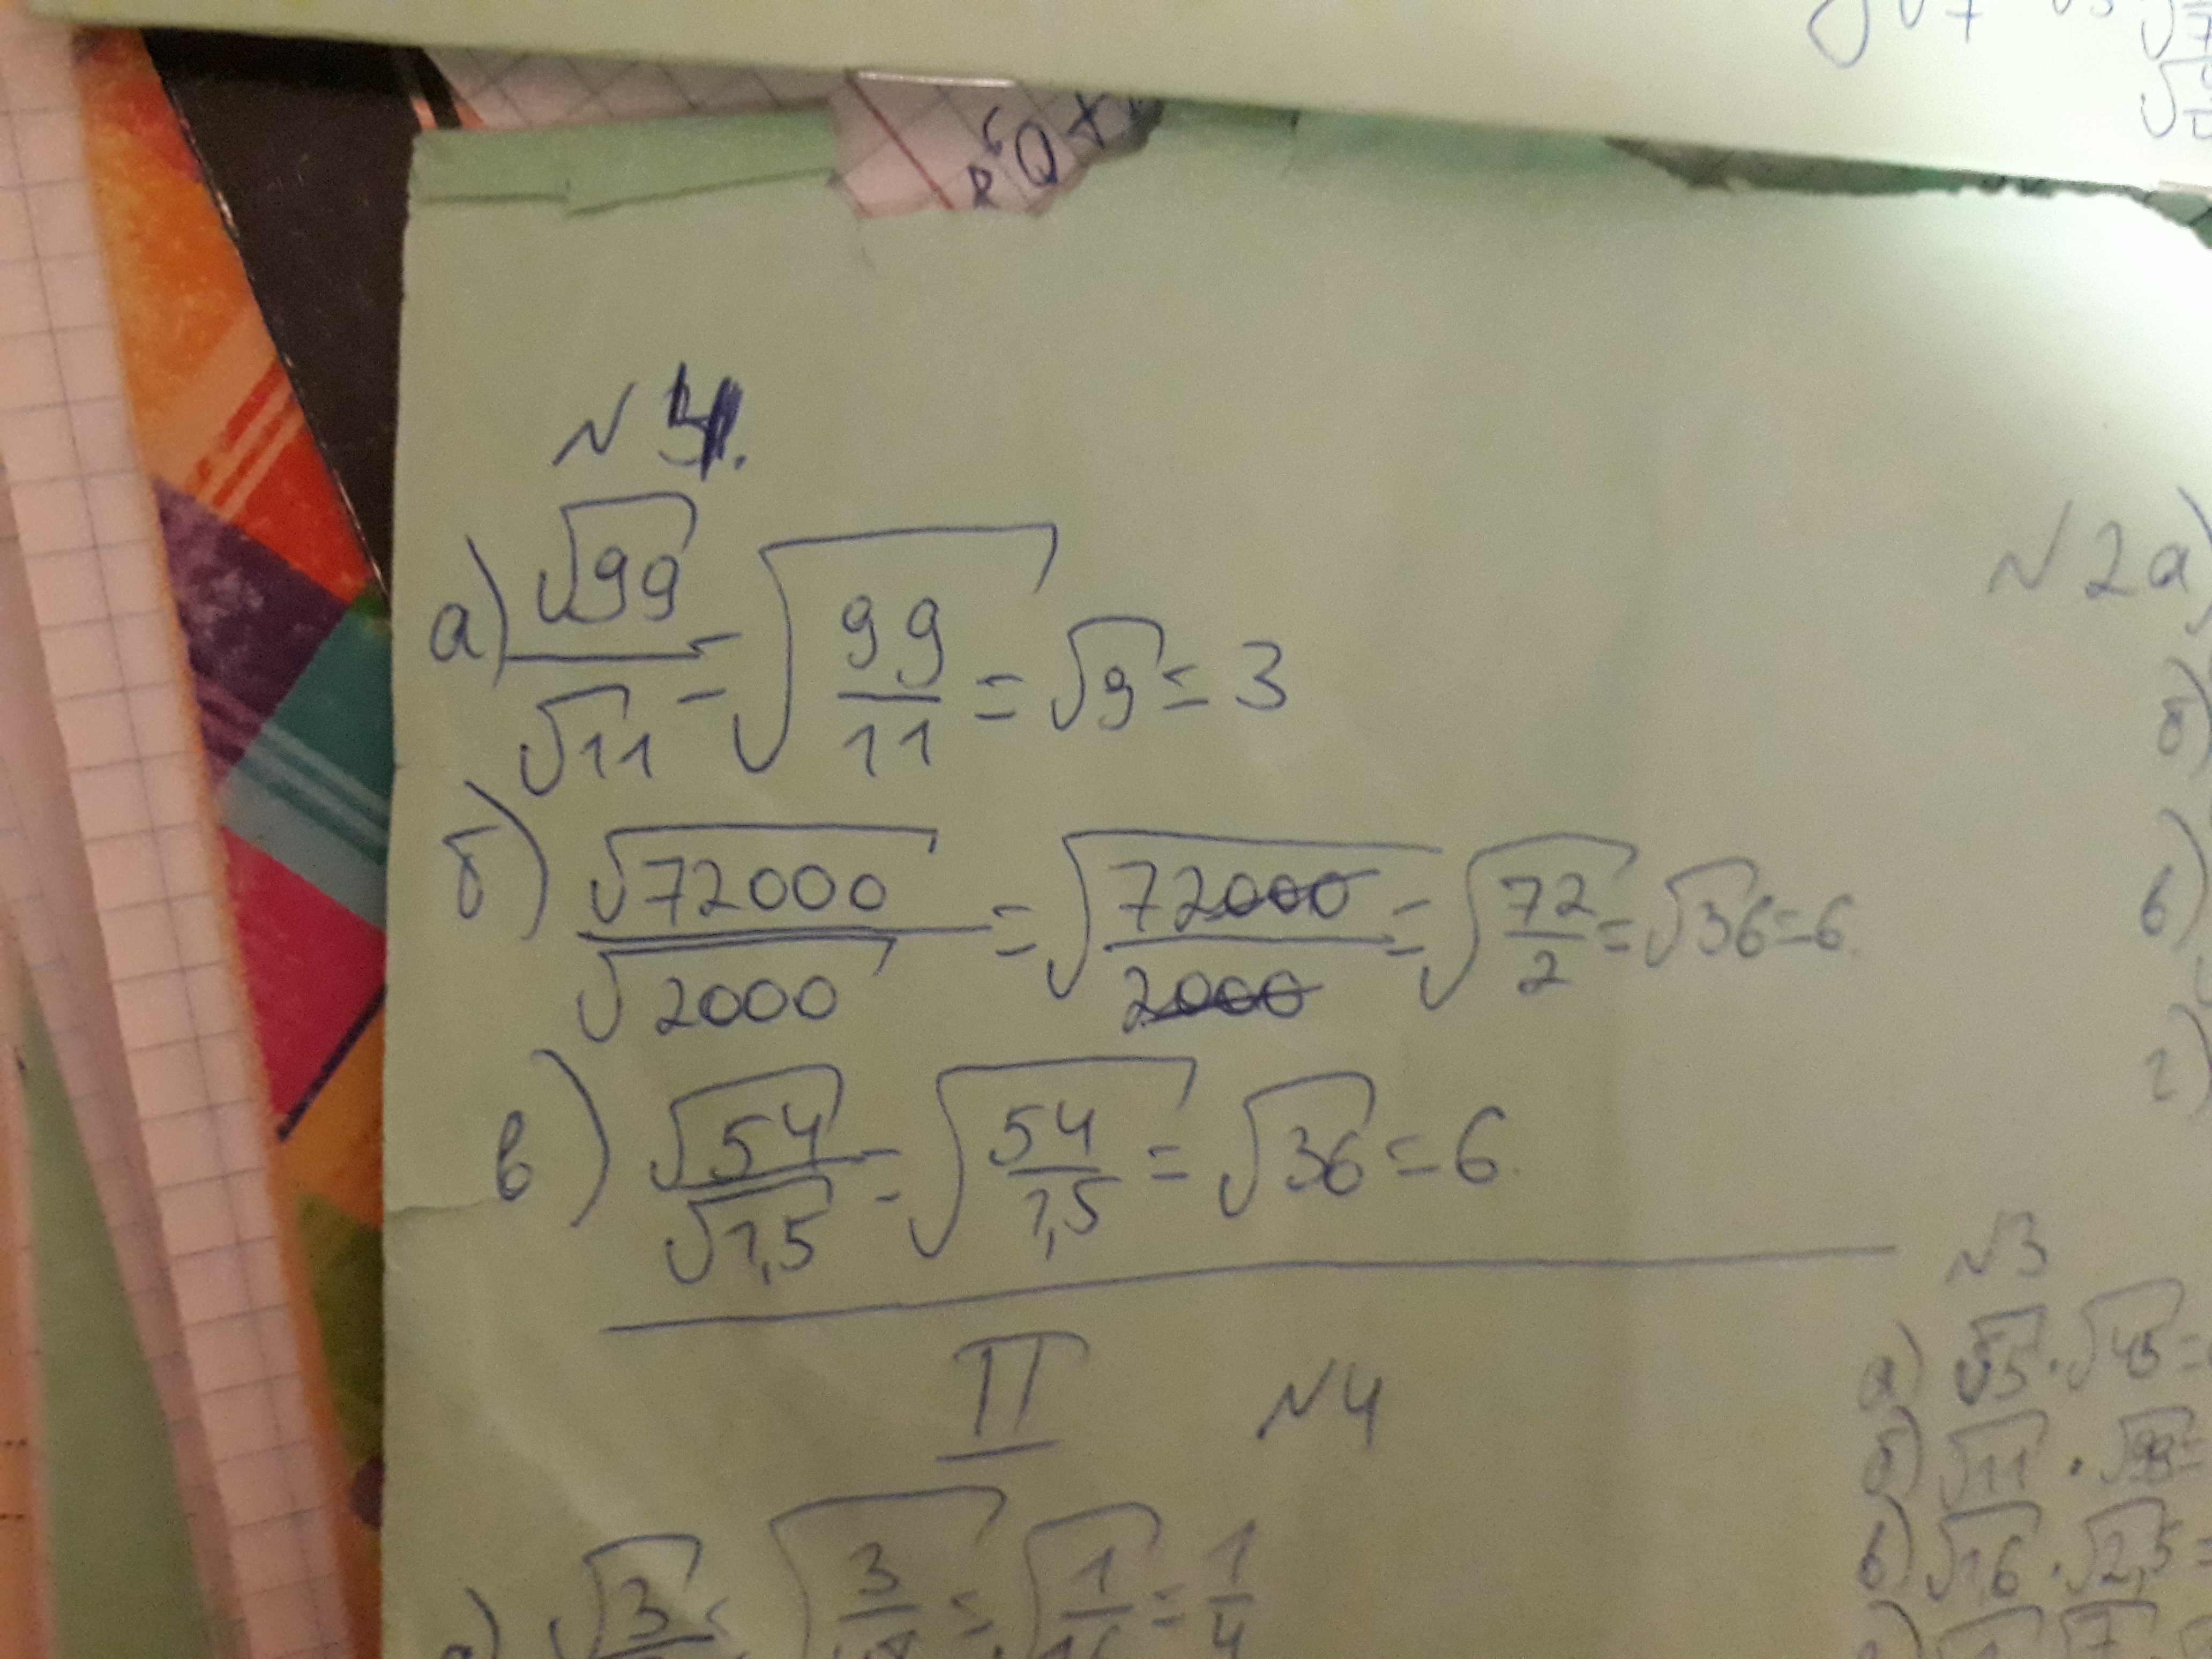 № 4.
а) √99/√11 = √(99/11) = √9 = 3
б) √72000/√2000 = √(72000/2000) = √(72/2) = √36 = 6.
в) √54/√1,5 = √(54/1,5) = √36 = 6.
II №4
√3 = √(3/ = √(1/ = 1/4
№2 а)
б)
в)
г)
№3
а) √5 · √45 =
б) √11 · √99 =
в) √1,6 · √2,5 =